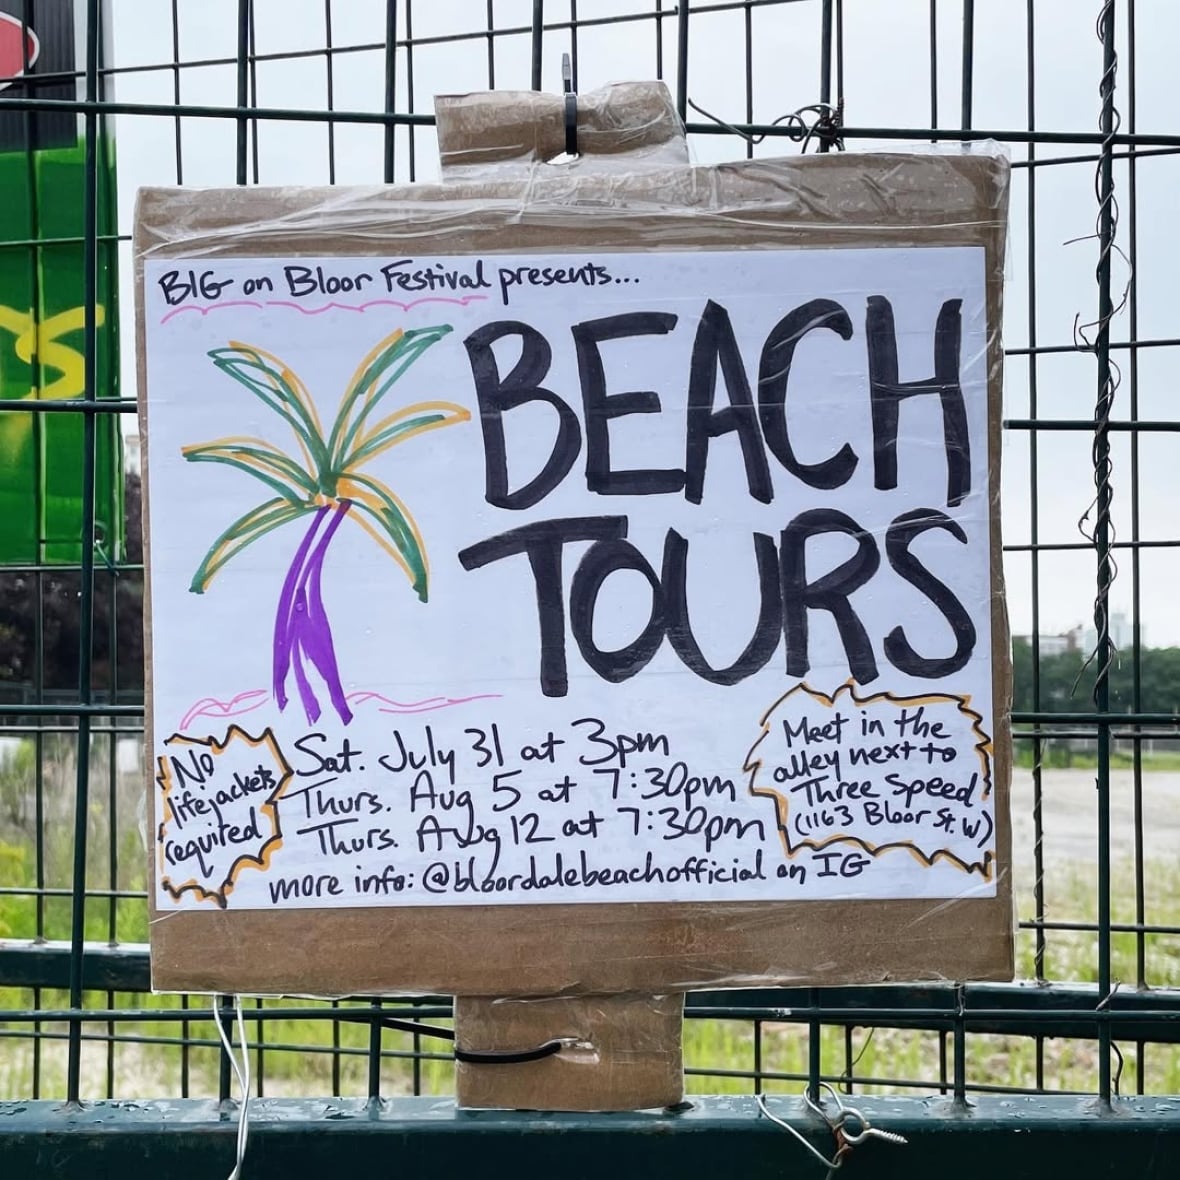 BIG on Bloor Festival presents...
BEACH
TOURS
No
lifejackets
required
Sat. July 31 at 3pm
Thurs. Aug 5 at 7:30pm
Thurs. Aug 12 at 7:30pm
more info: @bloordalebeachofficial on IG
Meet in the
alley next to
Three Speed
(1163 Bloor St. W)